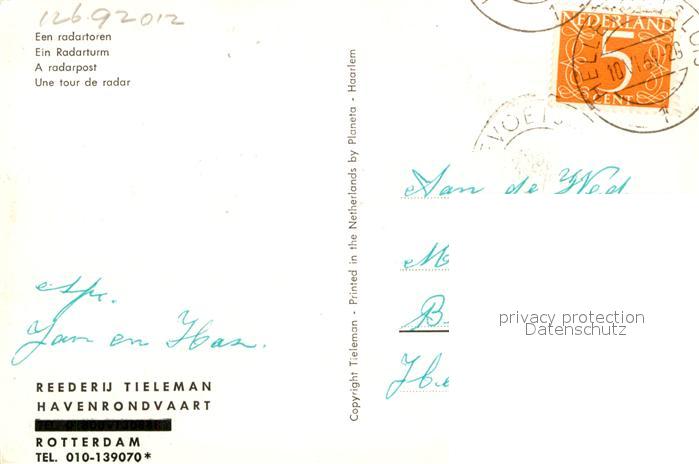 126.92012
Een radartoren
Ein Radarturm
A radarpost
Une tour de radar
NEDERLAND
5
CENT
HELLE
SLUIS
10 VI 6
VOETSL
1
Copyright Tieleman - Printed in the Netherlands by Planeta - Haarlem
Aan de Wed
M
B
privacy protection
Datenschutz
Jan en Han.
REEDERIJ TIELEMAN
HAVENRONDVAART
ROTTERDAM
TEL. 010-139070*